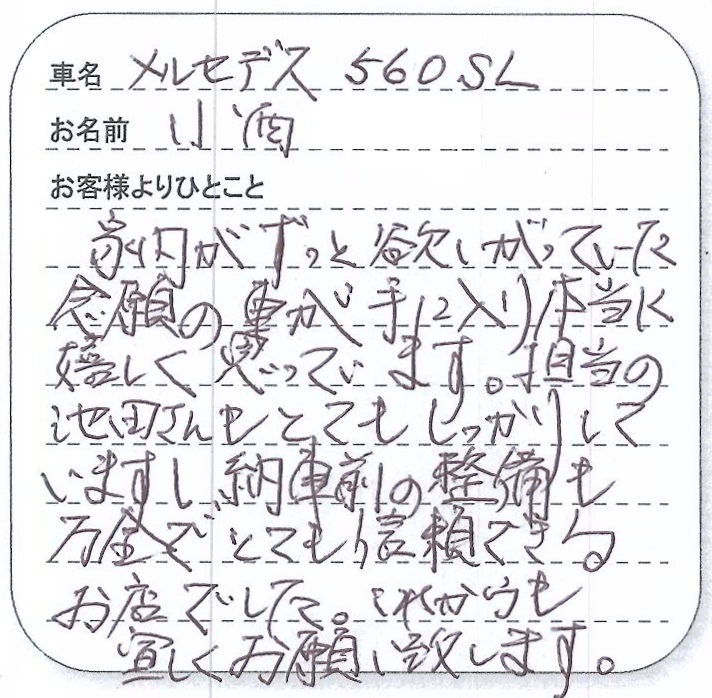 車名 メルセデス 560SL
お名前 小酒
お客様よりひとこと
家内がずっと欲しがっていた
念願の車が手に入り本当に
嬉しく思っています。担当の
池田さんもとてもしっかりして
いますし、納車前の整備も
万全でとても信頼できる
お店でした。これからも
宜しくお願い致します。